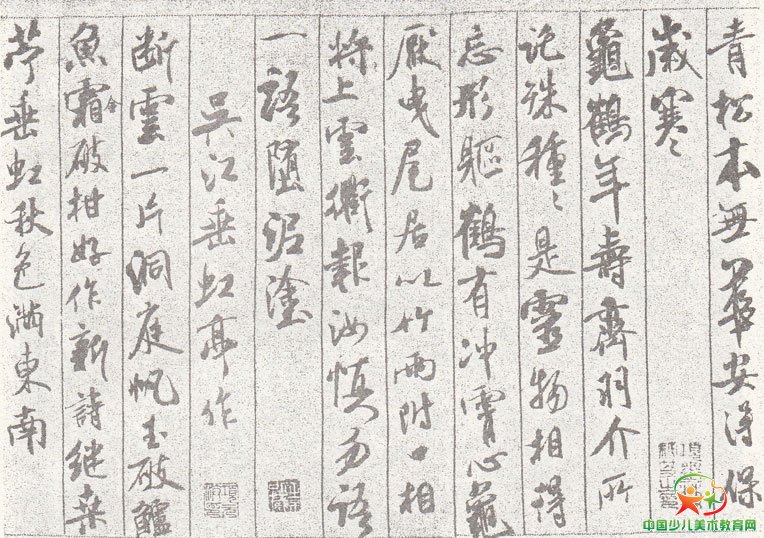 青松本無華安得保
歲寒
龜鶴年壽齊羽介所
託殊種〻是靈物相得
忘形軀鶴有冲霄心龜
厭曳尾居以竹兩附口相
將上雲衢報汝慎勿語
一語墮泥塗
吳江垂虹亭作
断雲一片洞庭帆玉破鱸
魚霜金破柑好作新詩継桑
苧垂虹秋色滿東南
中国少儿美术教育网